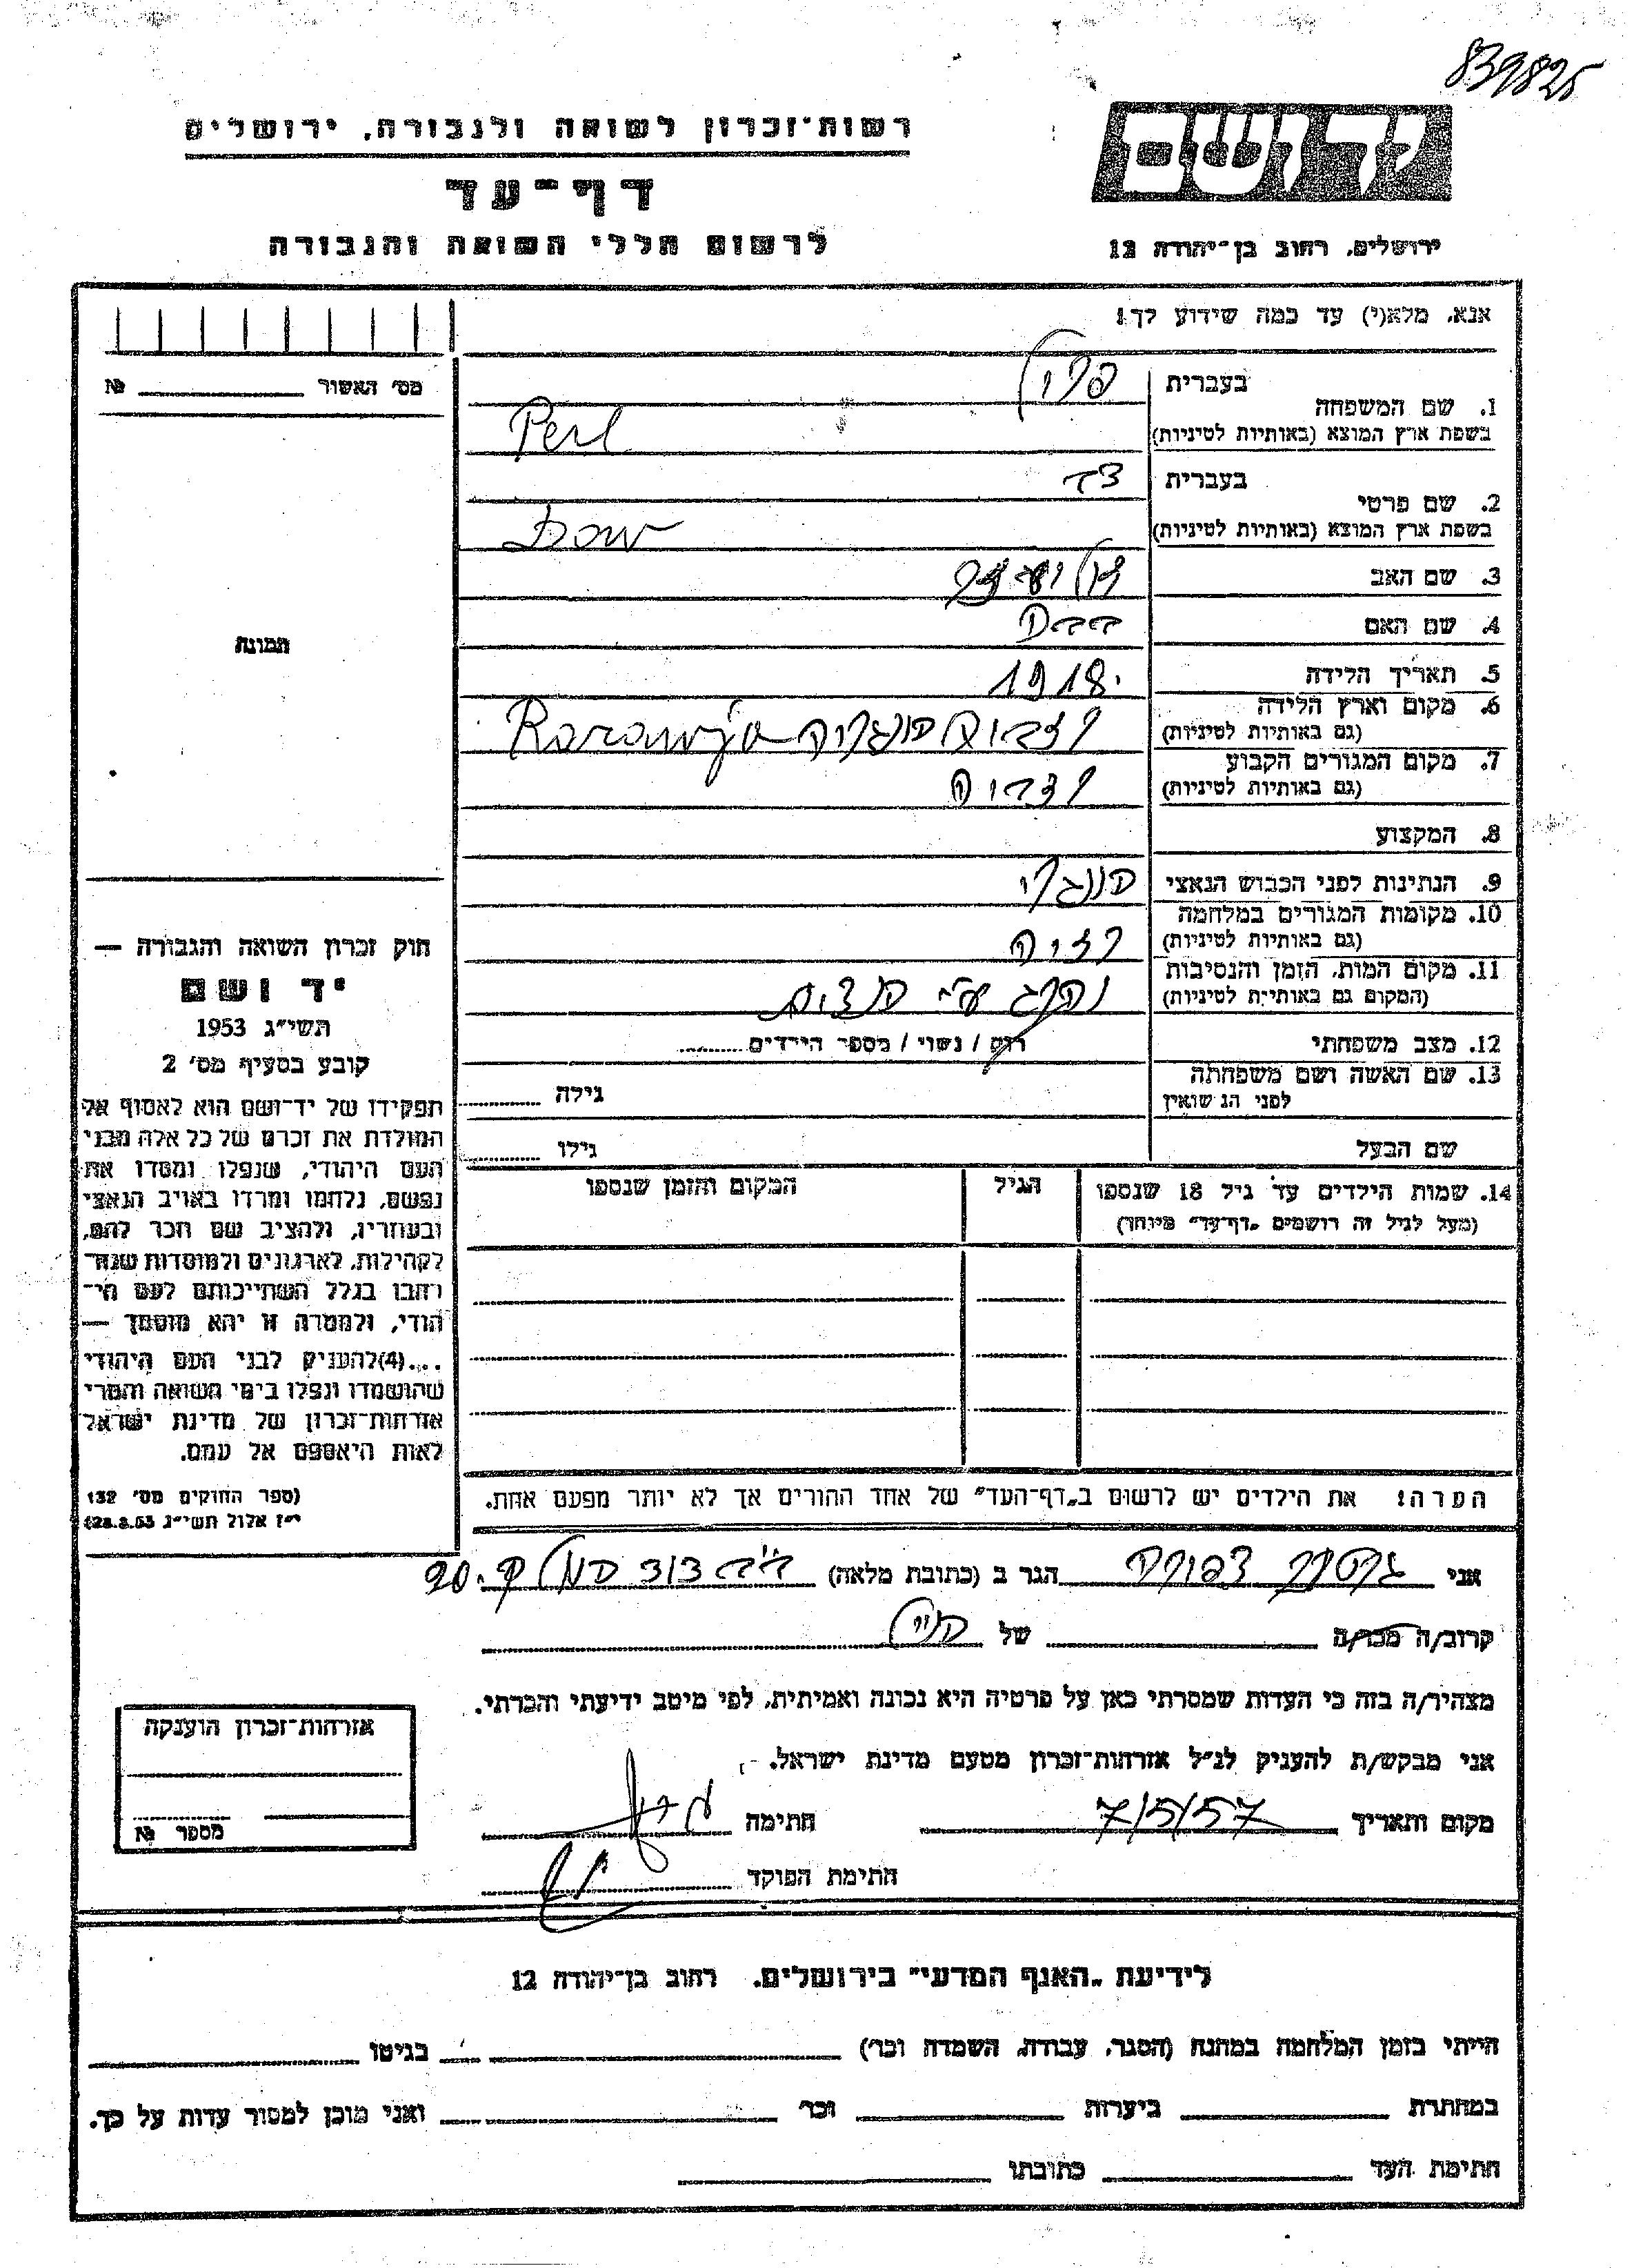 839825
רשות־זכרון לשואה ולגבורה, ירושלים
יד ושם
דף־עד
לרשום חללי השואה והגבורה
ירושלים, רחוב בן־יהודה 12
אנא, מלא(י) עד כמה שידוע לך!
מס׳ האשור № 
בעברית פרל
1. שם המשפחה
בשפת ארץ המוצא (באותיות לטיניות) Perl
בעברית דב
2. שם פרטי
בשפת ארץ המוצא (באותיות לטיניות)
3. שם האב
4. שם האם
תמונה
5. תאריך הלידה 1918
6. מקום וארץ הלידה
(גם באותיות לטיניות)
7. מקום המגורים הקבוע
(גם באותיות לטיניות)
8. המקצוע
9. הנתינות לפני הכבוש הנאצי
10. מקומות המגורים במלחמה
(גם באותיות לטיניות)
11. מקום המות, הזמן והנסיבות
(המקום גם באותיות לטיניות) נהרג ע״י
12. מצב משפחתי רוק / נשוי / מספר הילדים
13. שם האשה ושם משפחתה
לפני הנשואין גילה
שם הבעל גילו
14. שמות הילדים עד גיל 18 שנספו הגיל המקום והזמן שנספו
(מעל לגיל זה רושמים „דף־עד״ מיוחד)
הערה! את הילדים יש לרשום ב„דף־העד״ של אחד ההורים אך לא יותר מפעם אחת.
חוק זכרון השואה והגבורה —
יד ושם
תשי״ג 1953
קובע בסעיף מס׳ 2
תפקידו של יד־ושם הוא לאסוף אל
המולדת את זכרם של כל אלה מבני
העם היהודי, שנפלו ומסרו את
נפשם, נלחמו ומרדו באויב הנאצי
ובעוזריו, ולהציב שם וזכר להם,
לקהילות, לארגונים ולמוסדות שנח־
רבו בגלל השתייכותם לעם הי־
הודי, ולמטרה זו יהא מוסמך —
...(4) להעניק לבני העם היהודי
שהושמדו ונפלו בימי השואה והמרי
אזרחות־זכרון של מדינת ישראל
לאות היאספם אל עמם.
(ספר החוקים מס׳ 132
י״ז אלול תשי״ג 28.8.53)
אני הגר ב (כתובת מלאה) 20
קרוב/ה מכר/ה של
מצהיר/ה בזה כי העדות שמסרתי כאן על פרטיה היא נכונה ואמיתית, לפי מיטב ידיעתי והכרתי.
אני מבקש/ת להעניק לנ״ל אזרחות־זכרון מטעם מדינת ישראל.
מקום ותאריך 7/5/57 חתימה
חתימת הפוקד
אזרחות־זכרון הוענקה
מספר №
לידיעת „האגף המדעי״ בירושלים, רחוב בן־יהודה 12
הייתי בזמן המלחמה במחנה (הסגר, עבודה, השמדה וכר׳) בגיטו
במחתרת ביערות וכר׳ ואני מוכן למסור עדות על כך.
חתימת העד כתובתו